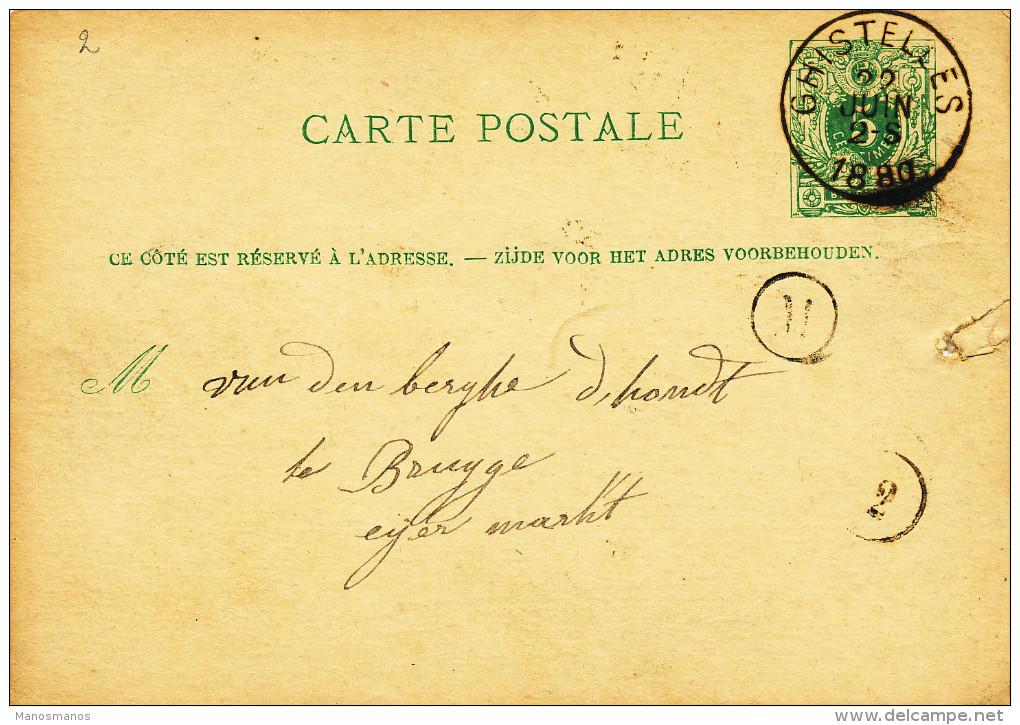 2
GHISTELLES
22
JUIN
2-S
1880
5
CARTE POSTALE
CE CÔTÉ EST RÉSERVÉ À L'ADRESSE. — ZIJDE VOOR HET ADRES VOORBEHOUDEN.
M van den berghe d'hondt
te Brugge
eijer markt
2
Manosmanos
delcampe.net